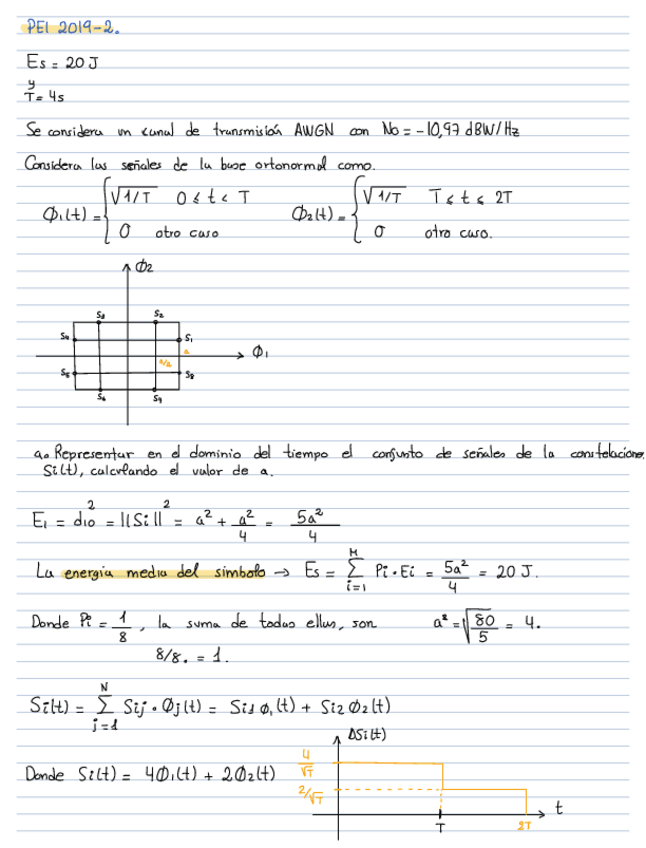 PEI 2019-2.
Es = 20 J
y
T = 4s
Se considera un canal de transmisión AWGN con No = -10,97 dBW/Hz
Considera las señales de la base ortonormal como.
Φ1(t) = { √1/T 0 ≤ t < T Φ2(t) = { √1/T T ≤ t ≤ 2T
0 otro caso 0 otro caso.
Φ2
S3 S2
S4 S1
a
Φ1
a/2
S5 S8
S6 S7
a. Representar en el dominio del tiempo el conjunto de señales de la constelacione
Si(t), calculando el valor de a.
E1 = d10² = ||Si||² = a² + a²/4 = 5a²/4
La energia media del simbolo → Es = Σ(i=1, M) Pi · Ei = 5a²/4 = 20 J.
Donde Pi = 1/8, la suma de todas ellas, son a² = √80/5 = 4.
8/8. = 1.
Si(t) = Σ(j=1, N) Sij · Φj(t) = Si1 Φ1(t) + Si2 Φ2(t)
ΔSi(t)
4/√T
Donde Si(t) = 4Φ1(t) + 2Φ2(t)
2/√T
t
T 2T